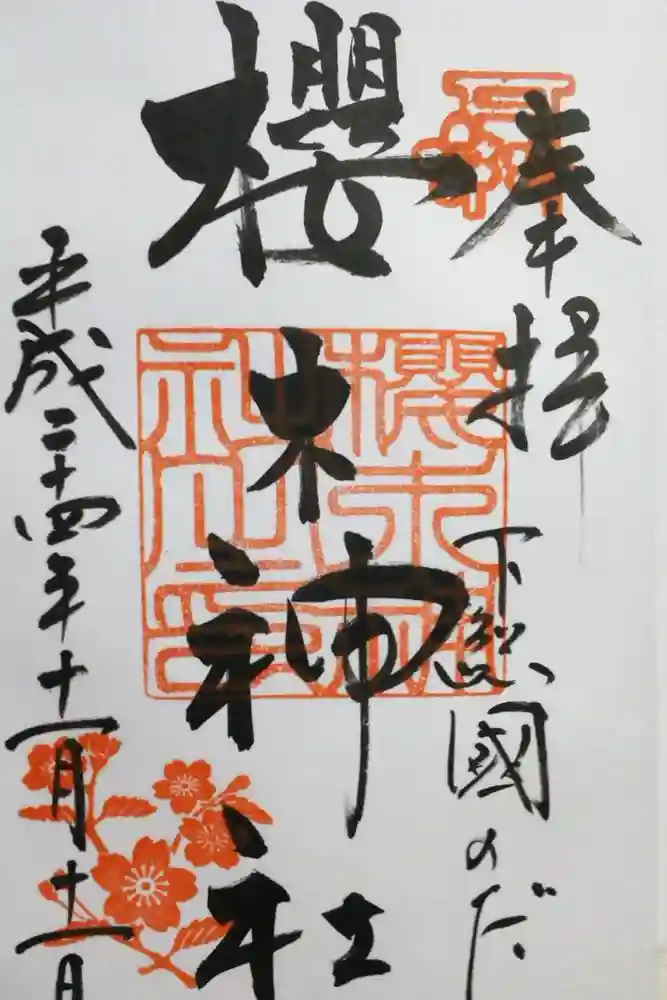 奉拝
下総國のだ
櫻木神社
櫻木神社印
平成二十四年十一月十一日